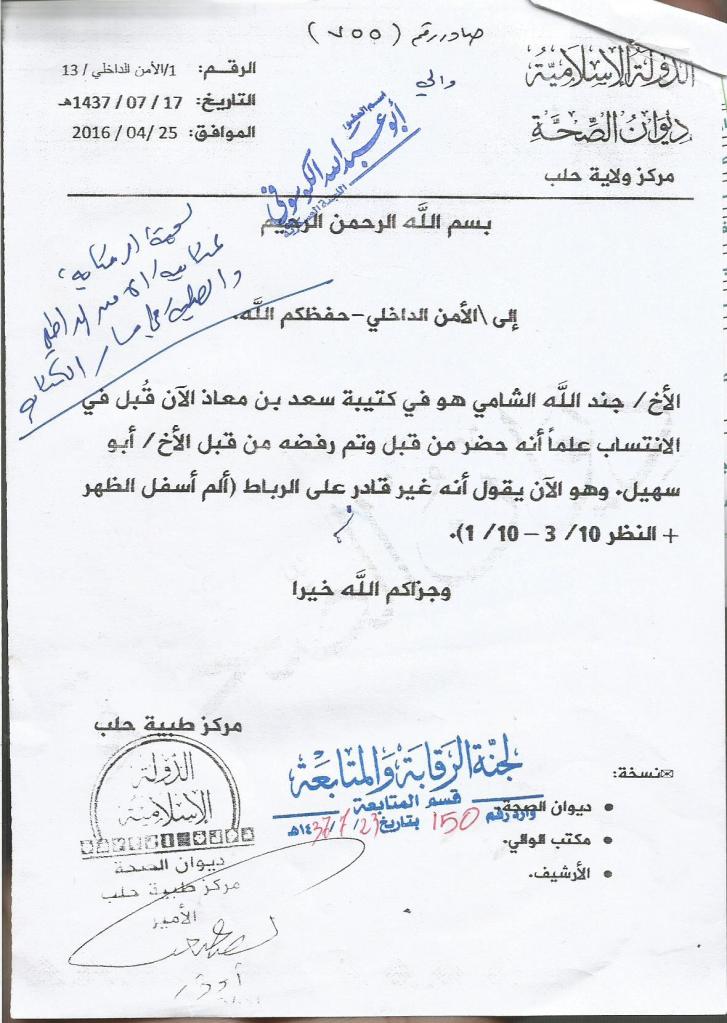 صادر رقم (٧٥٥)
الدولة الإسلامية
ديوان الصحة
مركز ولاية حلب
الرقم: 1/الأمن الداخلي/ 13
التاريخ: 17 / 07 / 1437هـ
الموافق: 25 / 04 / 2016
أبو عبد الله الكوسوفي
بسم الله الرحمن الرحيم
إلى \الأمن الداخلي-حفظكم الله.
الأخ/ جند الله الشامي هو في كتيبة سعد بن معاذ الآن قُبل في
الانتساب علماً أنه حضر من قبل وتم رفضه من قبل الأخ/ أبو
سهيل. وهو الآن يقول أنه غير قادر على الرباط (ألم أسفل الظهر
+ النظر 10/ 3 – 10/ 1).
وجزاكم الله خيرا
مركز طبية حلب
الدولة
الإسلامية
ديوان الصحة
مركز طبية حلب
الأمير
لجنة الرقابة والمتابعة
قسم المتابعة
وارد رقم 150 بتاريخ 23/7/1437هـ
نسخة:
• ديوان الصحة
• مكتب الوالي.
• الأرشيف.